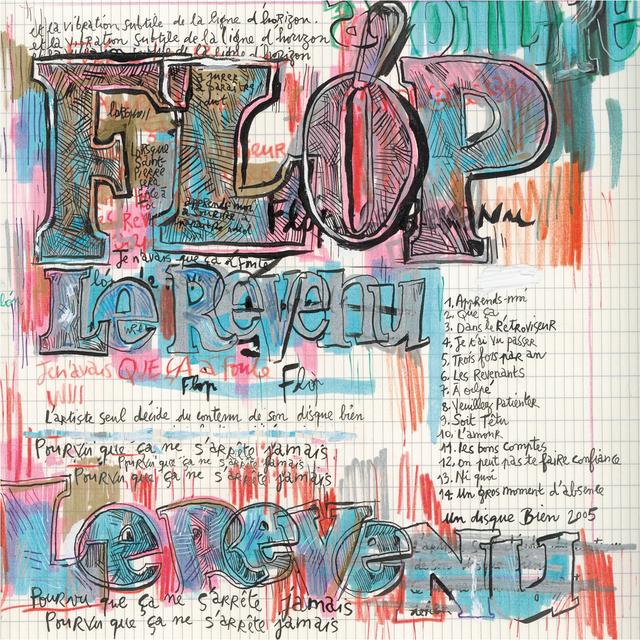 et la vibration subtile de la ligne d'horizon.
et la vibration subtile de la ligne d'horizon
et la vibration subtile de la ligne d'horizon
FLÓP
Lorsque
Saint-
Pierre
Je n'avais que ça à foutre
Le Revenu
Je n'avais QUE ÇA à foutre
Flóp Flóp
L'artiste seul décide du contenu de son disque bien
1. Apprends-moi
2. Que ça
3. Dans le RÉTROVISEUR
4. Je t'ai vu passer
5. Trois fois par an
6. Les Revenants
7. À oilpé
8. Veuillez patienter
9. Soit Têtu
10. L'amour
11. Les bons comptes
12. On peut pas te faire confiance
13. Ni quoi
14 Un gros moment d'absence
Un disque Bien 2005
Pourvu que ça ne s'arrête jamais
Pourvu que ça ne s'arrête jamais
Pourvu que ça ne s'arrête jamais
Le Revenu
Pourvu que ça ne s'arrête jamais
Pourvu que ça ne s'arrête jamais